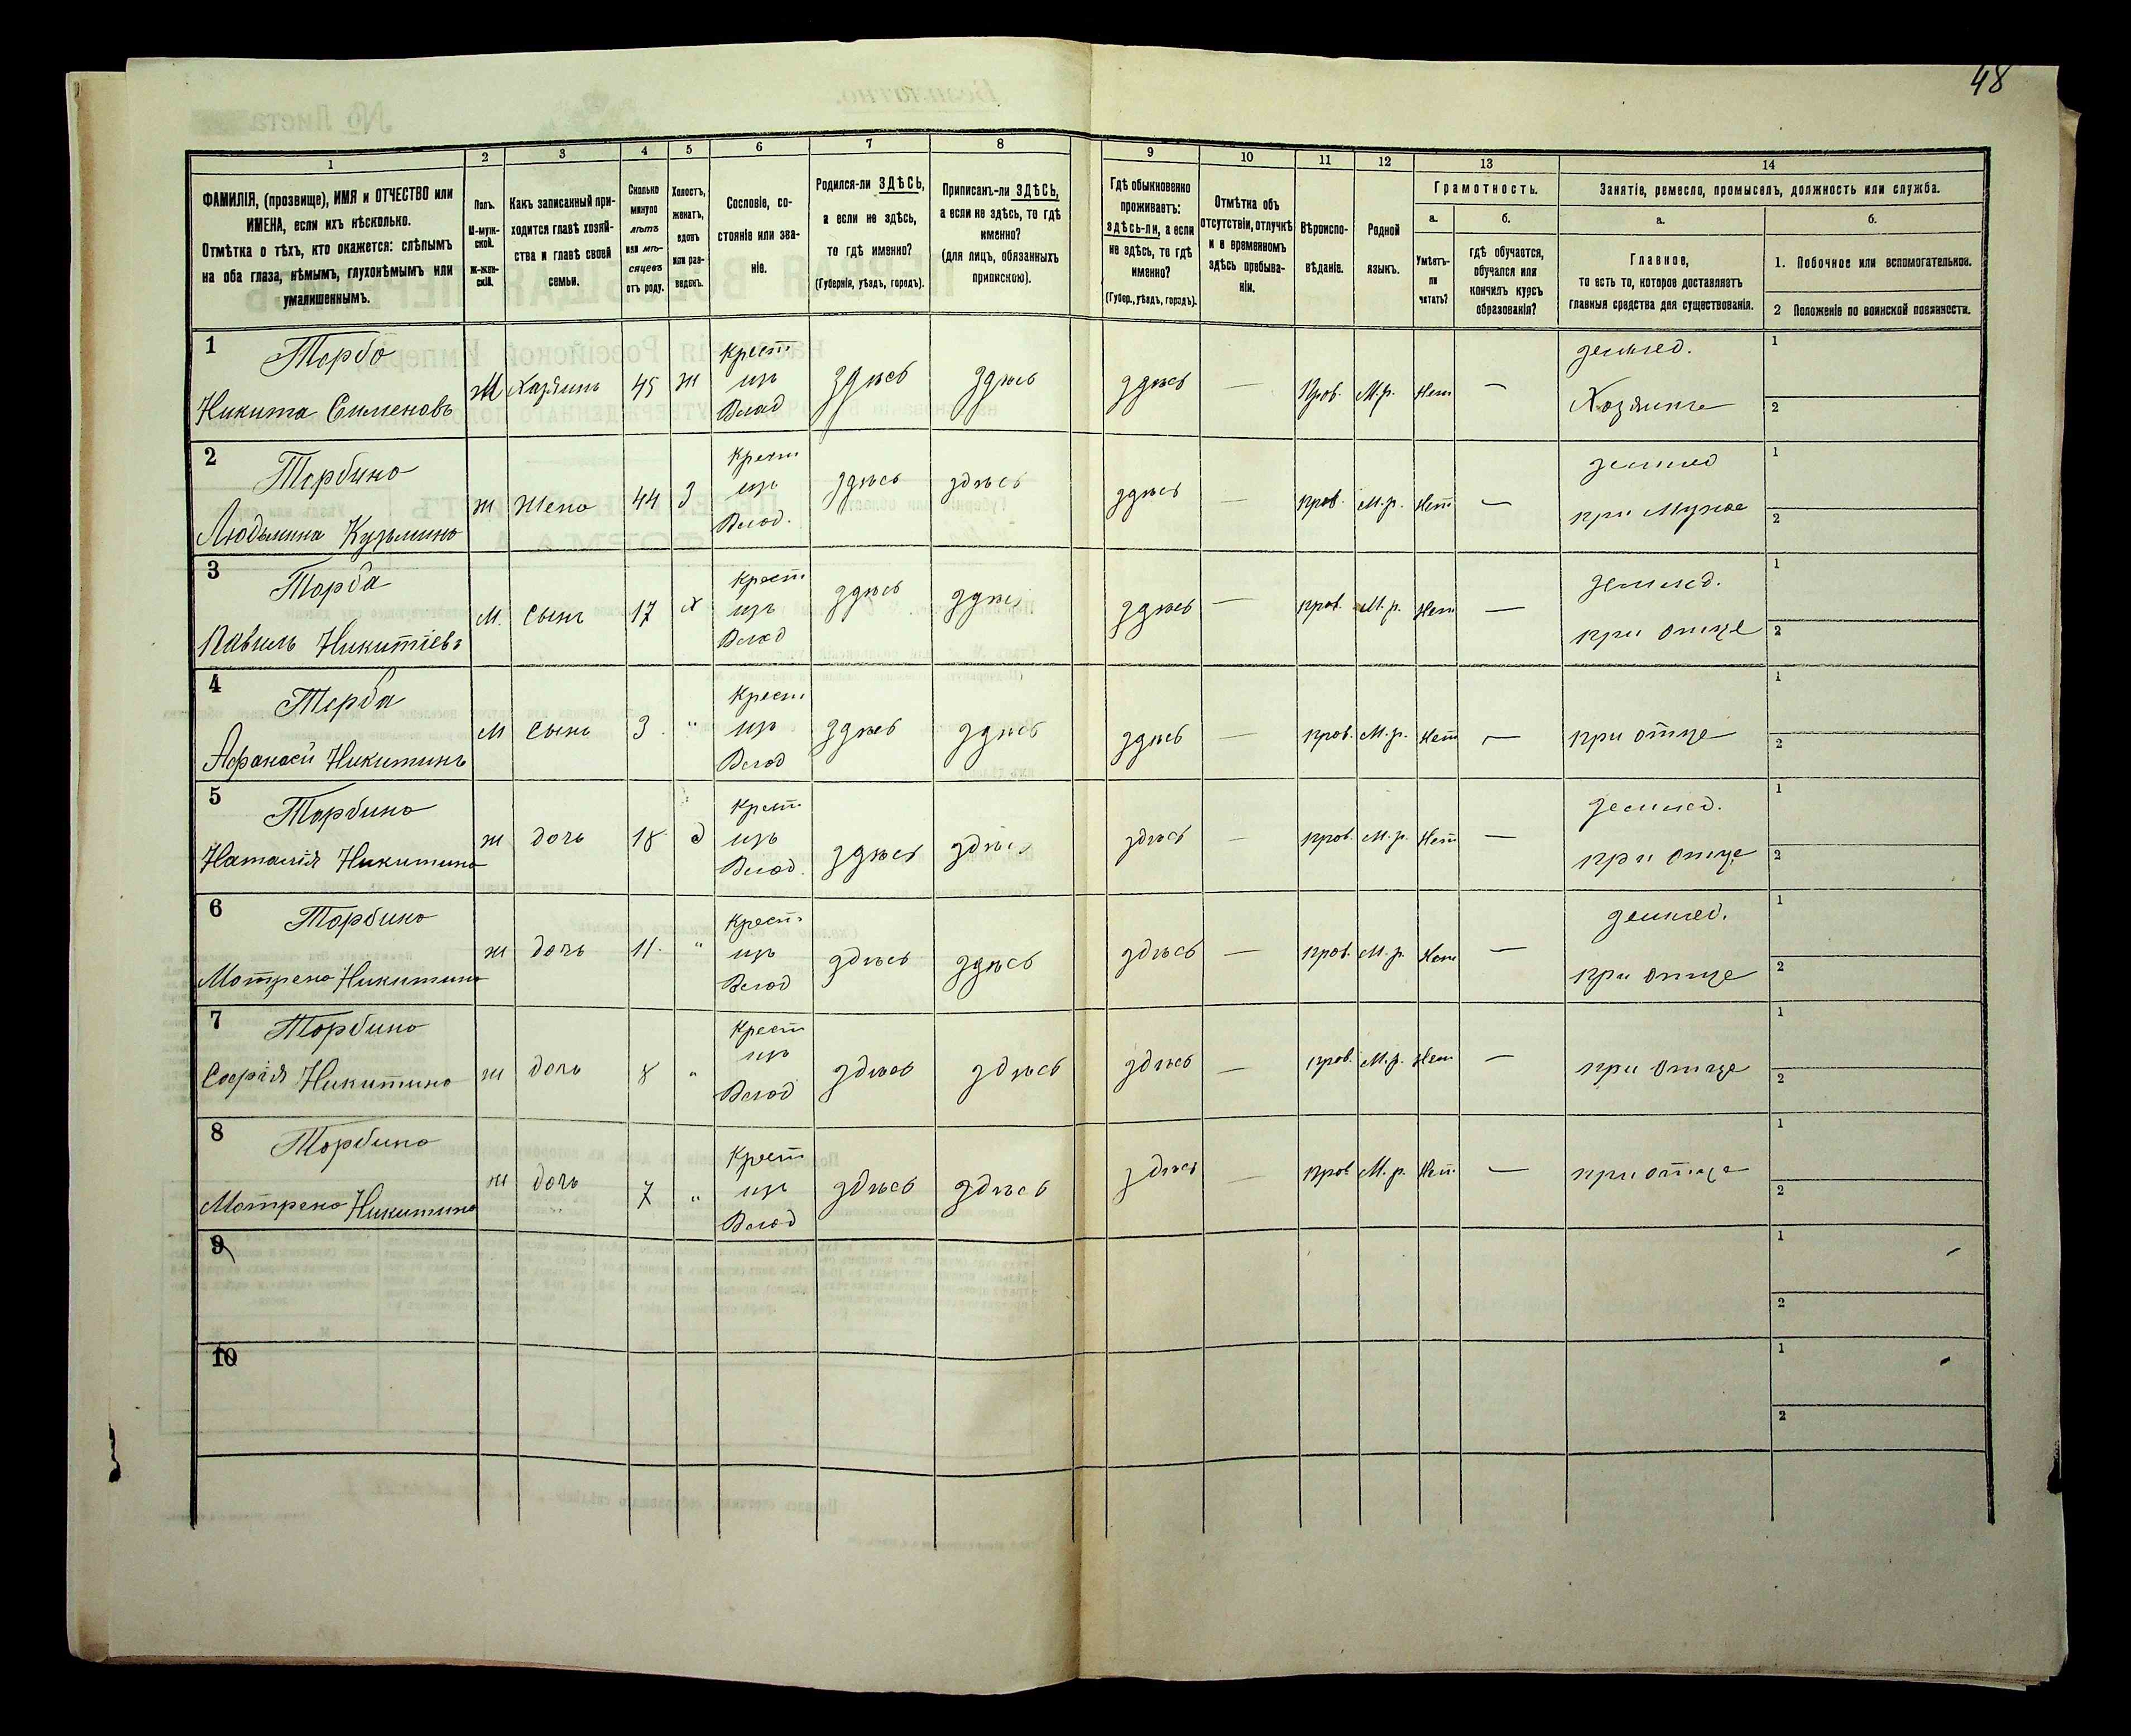 48
1
2
3
4
5
6
7
8
9
10
11
12
13
14
ФАМИЛІЯ, (прозвище), ИМЯ и ОТЧЕСТВО или
ИМЕНА, если ихъ нѣсколько.
Отмѣтка о тѣхъ, кто окажется: слѣпымъ
на оба глаза, нѣмымъ, глухонѣмымъ или
умалишеннымъ.
Полъ.
М-муж-
ской.
Ж-жен-
скій.
Какъ записанный при-
ходится главѣ хозяй-
ства и главѣ своей
семьи.
Сколько
минуло
лѣтъ
или мѣ-
сяцевъ
отъ роду.
Холостъ,
женатъ,
вдовъ
или раз-
веденъ.
Сословіе, со-
стояніе или зва-
ніе.
Родился-ли ЗДѢСЬ,
а если не здѣсь,
то гдѣ именно?
(Губернія, уѣздъ, городъ).
Приписанъ-ли ЗДѢСЬ,
а если не здѣсь, то гдѣ
именно?
(для лицъ, обязанныхъ
припискою).
Гдѣ обыкновенно
проживаетъ:
здѣсь-ли, а если
не здѣсь, то гдѣ
именно?
(Губер., уѣздъ, городъ).
Отмѣтка объ
отсутствіи, отлучкѣ
и о временномъ
здѣсь пребыва-
ніи.
Вѣроиспо-
вѣданіе.
Родной
языкъ.
Грамотность.
а.
Умѣетъ-
ли
читать?
б.
гдѣ обучается,
обучался или
кончилъ курсъ
образованія?
Занятіе, ремесло, промыселъ, должность или служба.
а.
Главное,
то есть то, которое доставляетъ
главныя средства для существованія.
б.
1. Побочное или вспомогательное.
2 Положеніе по воинской повинности.
1
Торба
Никита Сименовъ
М Хазяинъ 45 ж
Крест
изъ
Влад
здѣсь здѣсь здѣсь — Прав. М.р. Нет —
землед.
Хозяинъ
1
2
2
Торбина
Людьмина Кузьмина
ж Жена 44 З
Крест
изъ
Влад.
здѣсь здѣсь здѣсь — прав. М.р. Нет —
землед
при Мужѣ
1
2
3
Торба
Павиль Никитіевъ
М. Сынъ 17 х
Крест
изъ
Влад
здѣсь здѣсь здѣсь — прав. М.р. Нет —
землед.
при отце
1
2
4
Торба
Афанасій Никитинъ
М Сынъ 3 "
Крест
изъ
Влад
здѣсь здѣсь здѣсь — прав. М.р. Нет —
при отце
1
2
5
Торбина
Наталія Никитина
ж дочь 18 д
Крест
изъ
Влад.
здѣсь здѣсь здѣсь — прав. М.р. Нет —
землед.
при отце
1
2
6
Торбина
Мотрена Никитина
ж дочь 11. "
Крест
изъ
Влад
здѣсь здѣсь здѣсь — прав. М.р. Нет —
землед.
при отце
1
2
7
Торбина
Софія Никитина
ж дочь 8 "
Крест
изъ
Влад
здѣсь здѣсь здѣсь — прав. М.р. Нет —
при отце
1
2
8
Торбина
Мотрена Никитина
ж дочь 7 "
Крест
изъ
Влад
здѣсь здѣсь здѣсь — прав М.р. Нет. —
при отце
1
2
9
1
2
10
1
2